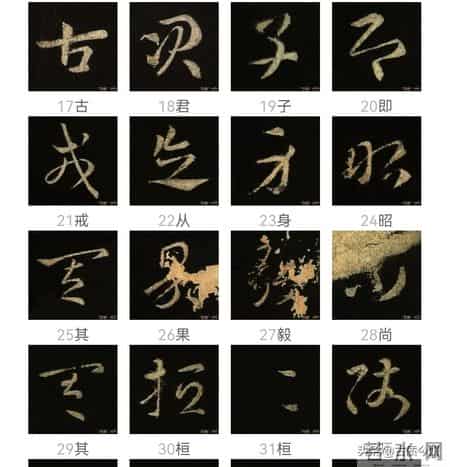 17古 18君 19子 20即
21戒 22从 23身 24昭
25其 26果 27毅 28尚
29其 30桓 31桓